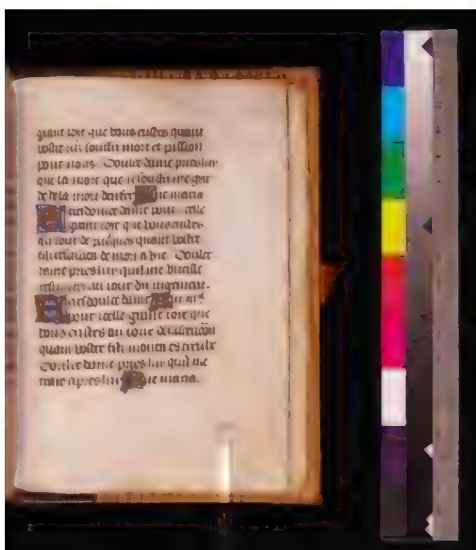 grant ioie que vous eustes quant
vostre filz souffri mort et passion
pour nous. Doulce dame
que la mort que il souffri me gar
de de la mort denfer Aue maria
doulce dame pour celle
grant ioie que vous eustes
au iour de pasques quant vostre
de mort a vie. Doulce
dame pries luy quil me vueille
au iour du iugement.
doulce dame Aue mar
pour icelle grant ioie que
vous eustes au iour
quant vostre filz monta es cieulx
Doulce dame pries luy quil me
apres luy Aue maria.